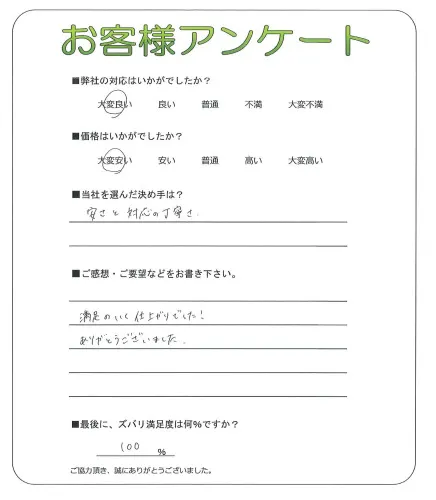 お客様アンケート
■弊社の対応はいかがでしたか？
大変良い 良い 普通 不満 大変不満
■価格はいかがでしたか？
大変安い 安い 普通 高い 大変高い
■当社を選んだ決め手は？
安さと対応の丁寧さ.
■ご感想・ご要望などをお書き下さい。
満足のいく仕上がりでした!
ありがとうございました.
■最後に、ズバリ満足度は何%ですか？
100 %
ご協力頂き、誠にありがとうございました。